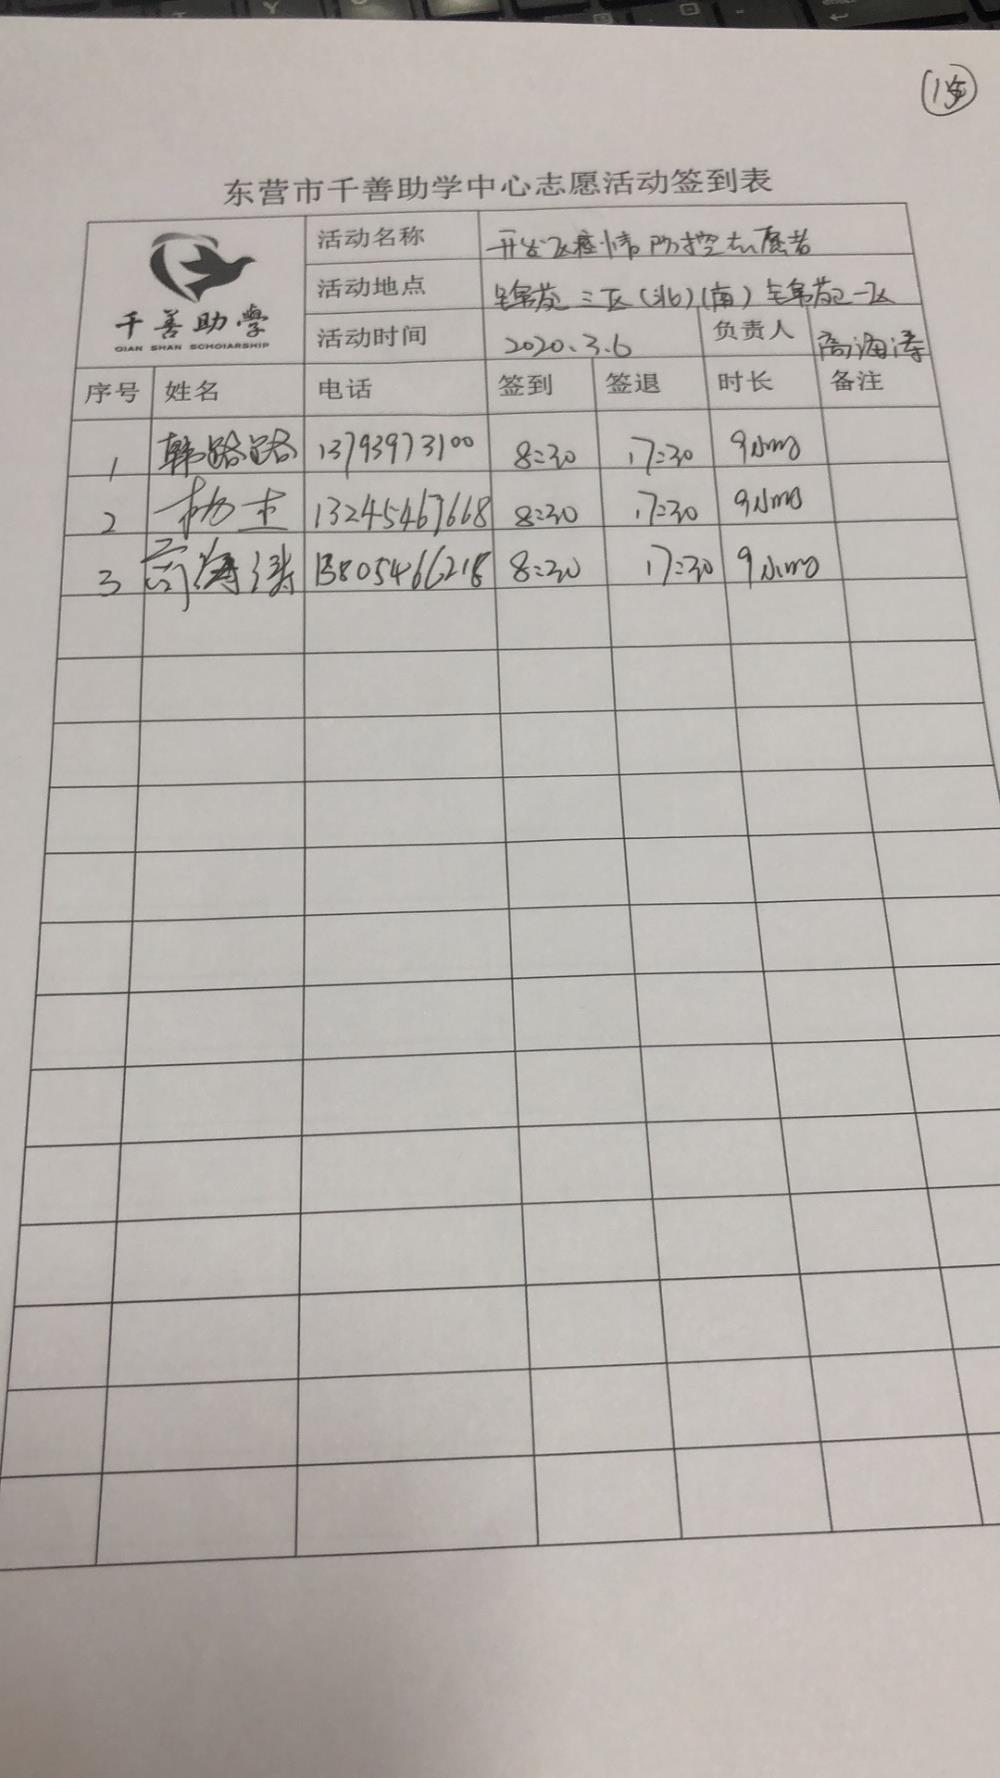 东营市千善助学中心志愿活动签到表
千善助学
QIAN SHAN SCHOIARSHIP
活动名称 开发区疫情防控志愿者
活动地点 三区(北)(南) 一区
活动时间 2020.3.6 负责人 高海涛
序号 姓名 电话 签到 签退 时长 备注
1 韩路路 13793973100 8:30 17:30 9小时
2 杨杰 13245467668 8:30 17:30 9小时
3 高海涛 13805466218 8:30 17:30 9小时